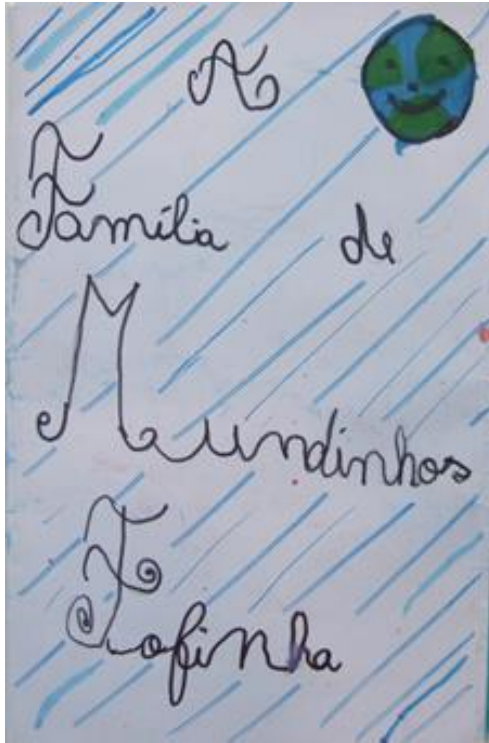 A
Família de
Mundinhos
Fofinha